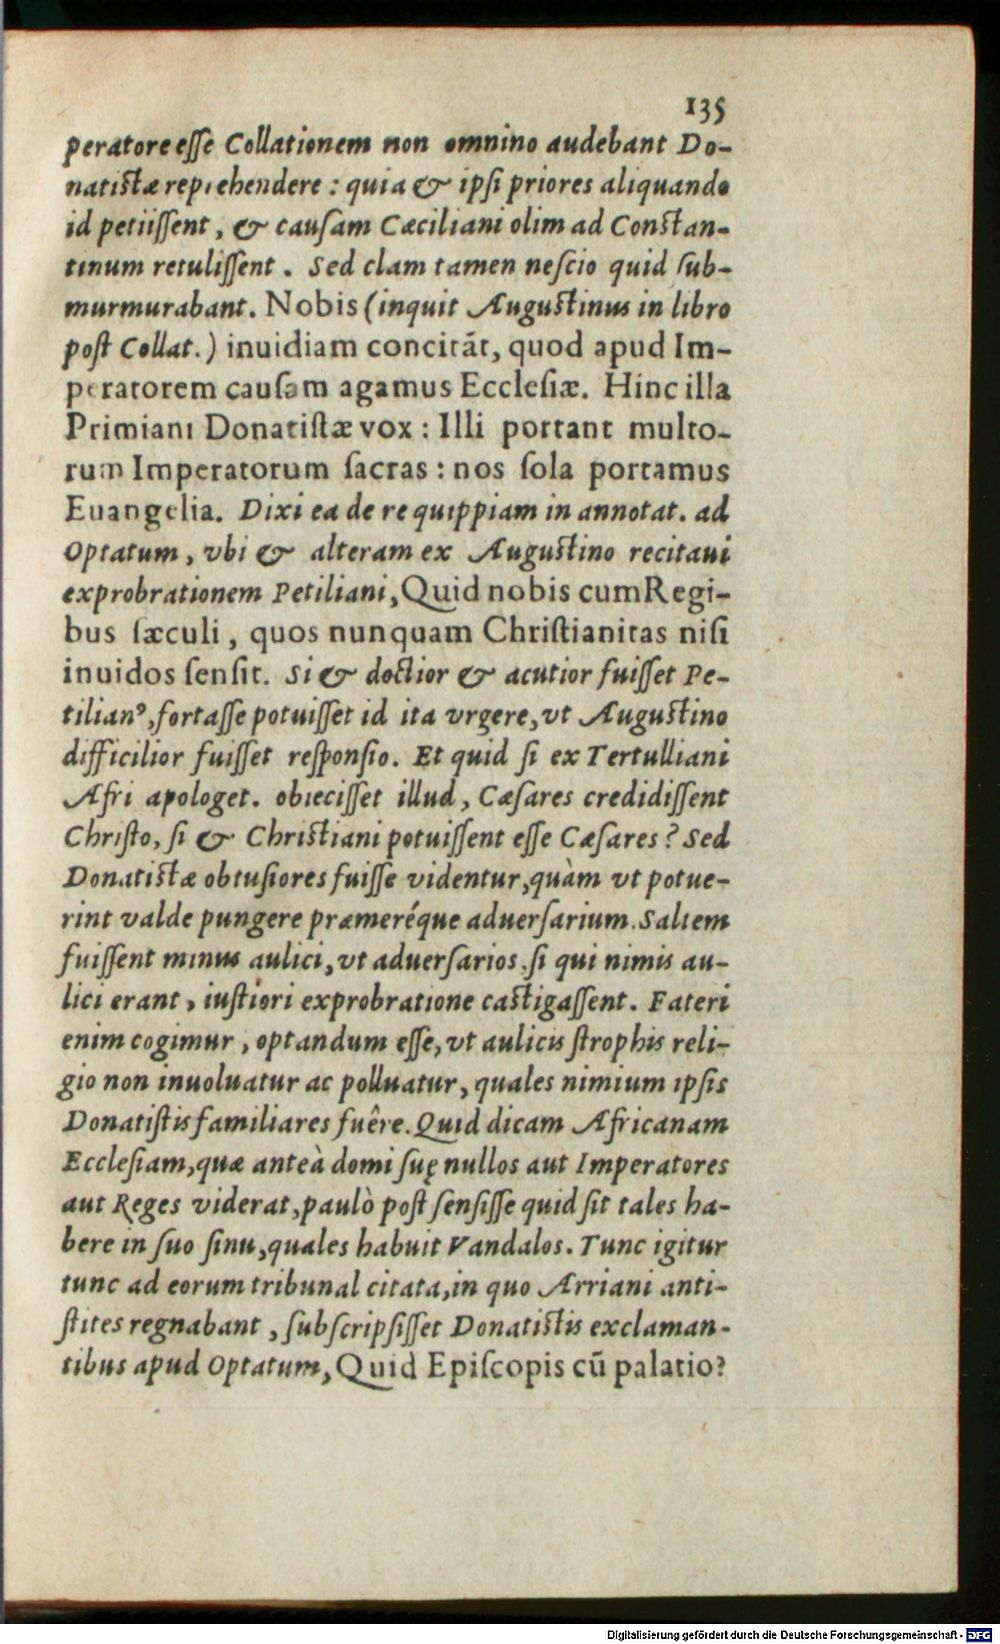 135
peratore eſſe Collationem non omnino audebant Do-
natiſtæ reprehendere : quia & ipſi priores aliquando
id petiiſſent, & cauſam Cæciliani olim ad Conſtan-
tinum retuliſſent. Sed clam tamen neſcio quid ſub-
murmurabant. Nobis (inquit Auguſtinus in libro
poſt Collat.) inuidiam concitāt, quod apud Im-
peratorem cauſam agamus Eccleſiæ. Hinc illa
Primiani Donatiſtæ vox : Illi portant multo-
rum Imperatorum ſacras : nos ſola portamus
Euangelia. Dixi ea de re quippiam in annotat. ad
Optatum, vbi & alteram ex Auguſtino recitaui
exprobrationem Petiliani, Quid nobis cum Regi-
bus ſæculi, quos nunquam Chriſtianitas niſi
inuidos ſenſit. Si & doctior & acutior fuiſſet Pe-
tilianꝰ, fortaſſe potuiſſet id ita vrgere, vt Auguſtino
difficilior fuiſſet reſponſio. Et quid ſi ex Tertulliani
Afri apologet. obieciſſet illud, Cæſares credidiſſent
Chriſto, ſi & Chriſtiani potuiſſent eſſe Cæſares? Sed
Donatiſtæ obtuſiores fuiſſe videntur, quàm vt potue-
rint valde pungere præmeréque aduerſarium. Saltem
fuiſſent minus aulici, vt aduerſarios, ſi qui nimis au-
lici erant, iuſtiori exprobratione caſtigaſſent. Fateri
enim cogimur, optandum eſſe, vt aulicis ſtrophis reli-
gio non inuoluatur ac polluatur, quales nimium ipſis
Donatiſtis familiares fuêre. Quid dicam Africanam
Eccleſiam, quæ anteà domi ſuę nullos aut Imperatores
aut Reges viderat, paulò poſt ſenſiſſe quid ſit tales ha-
bere in ſuo ſinu, quales habuit Vandalos. Tunc igitur
tunc ad eorum tribunal citata, in quo Arriani anti-
ſtites regnabant, ſubſcripſiſſet Donatiſtis exclaman-
tibus apud Optatum, Quid Epiſcopis cū palatio?
Digitalisierung gefördert durch die Deutsche Forschungsgemeinschaft - DFG